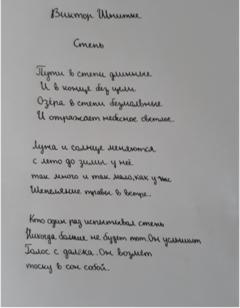 Виктор Шнитке
Степь
Пути в степи длинные
И в конце без цели.
Озёра в степи безмолвные
И отражает небесное светлое.
Луна и солнце меняются
с лето до зимы у неё
так много и так мало, как у нас
Шепелявие травы в ветре.
Кто один раз испытывал степь
Никогда больше не будет тот. Он услышит
Голос с далека. Он возьмёт
тоску в сон собой.